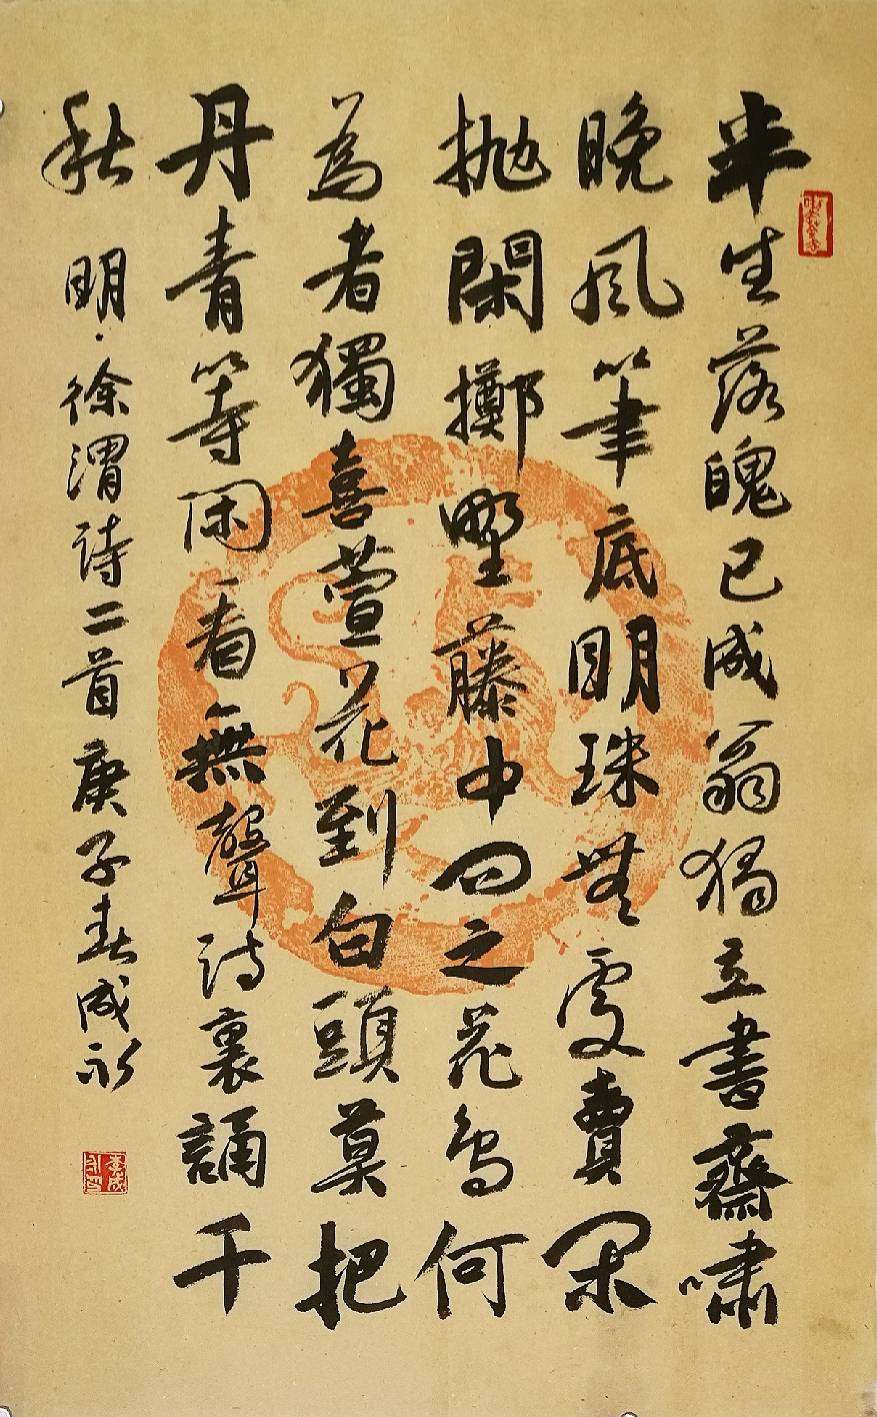 半生落魄已成翁獨立書齋嘯
晚風筆底明珠無處賣閑
拋閑擲野藤中問之花鳥何
為者獨喜萱花到白頭莫把
丹青等閑看無聲詩裏誦千
秋 明·徐渭詩二首庚子春成永
李成永印